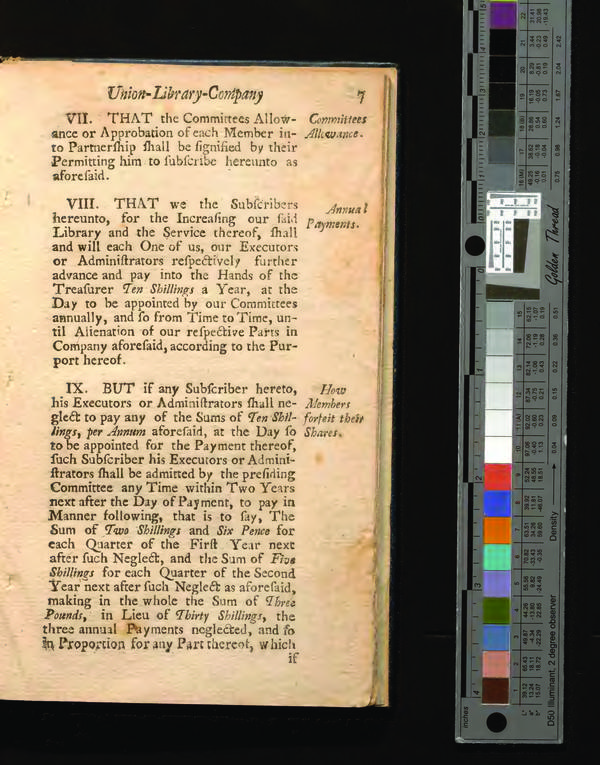 Union-Library-Company 7
VII. THAT the Committees Allow-
ance or Approbation of each Member in-
to Partnerſhip ſhall be ſignified by their
Permitting him to ſubſcribe hereunto as
aforeſaid.
Committees
Allowance.
VIII. THAT we the Subſcribers
hereunto, for the Increaſing our ſaid
Library and the Service thereof, ſhall
and will each One of us, our Executors
or Adminiſtrators reſpectively further
advance and pay into the Hands of the
Treaſurer Ten Shillings a Year, at the
Day to be appointed by our Committees
annually, and ſo from Time to Time, un-
til Alienation of our reſpective Parts in
Company aforeſaid, according to the Pur-
port hereof.
Annual
Payments.
IX. BUT if any Subſcriber hereto,
his Executors or Adminiſtrators ſhall ne-
glect to pay any of the Sums of Ten Shil-
lings, per Annum aforeſaid, at the Day ſo
to be appointed for the Payment thereof,
ſuch Subſcriber his Executors or Admini-
ſtrators ſhall be admitted by the preſiding
Committee any Time within Two Years
next after the Day of Payment, to pay in
Manner following, that is to ſay, The
Sum of Two Shillings and Six Pence for
each Quarter of the Firſt Year next
after ſuch Neglect, and the Sum of Five
Shillings for each Quarter of the Second
Year next after ſuch Neglect as aforeſaid,
making in the whole the Sum of Three
Pounds, in Lieu of Thirty Shillings, the
three annual Payments neglected, and ſo
in Proportion for any Part thereof, which
if
How
Members
forfeit their
Shares.
Golden Thread
Density
D50 Illuminant, 2 degree observer
inches